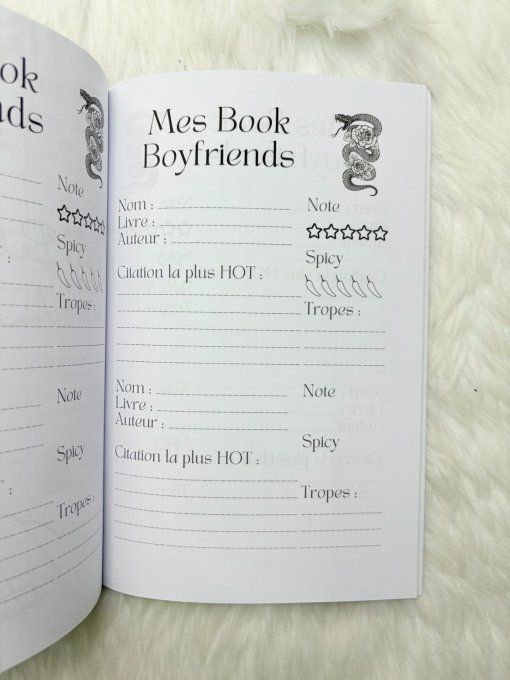 ok
nds
Note
Spicy
Tropes :
Note
Spicy
Tropes
Mes Book
Boyfriends
Nom :
Note
Livre :
Auteur :
Spicy
Citation la plus HOT :
Tropes :
Nom :
Note
Livre :
Auteur :
Spicy
Citation la plus HOT :
Tropes :